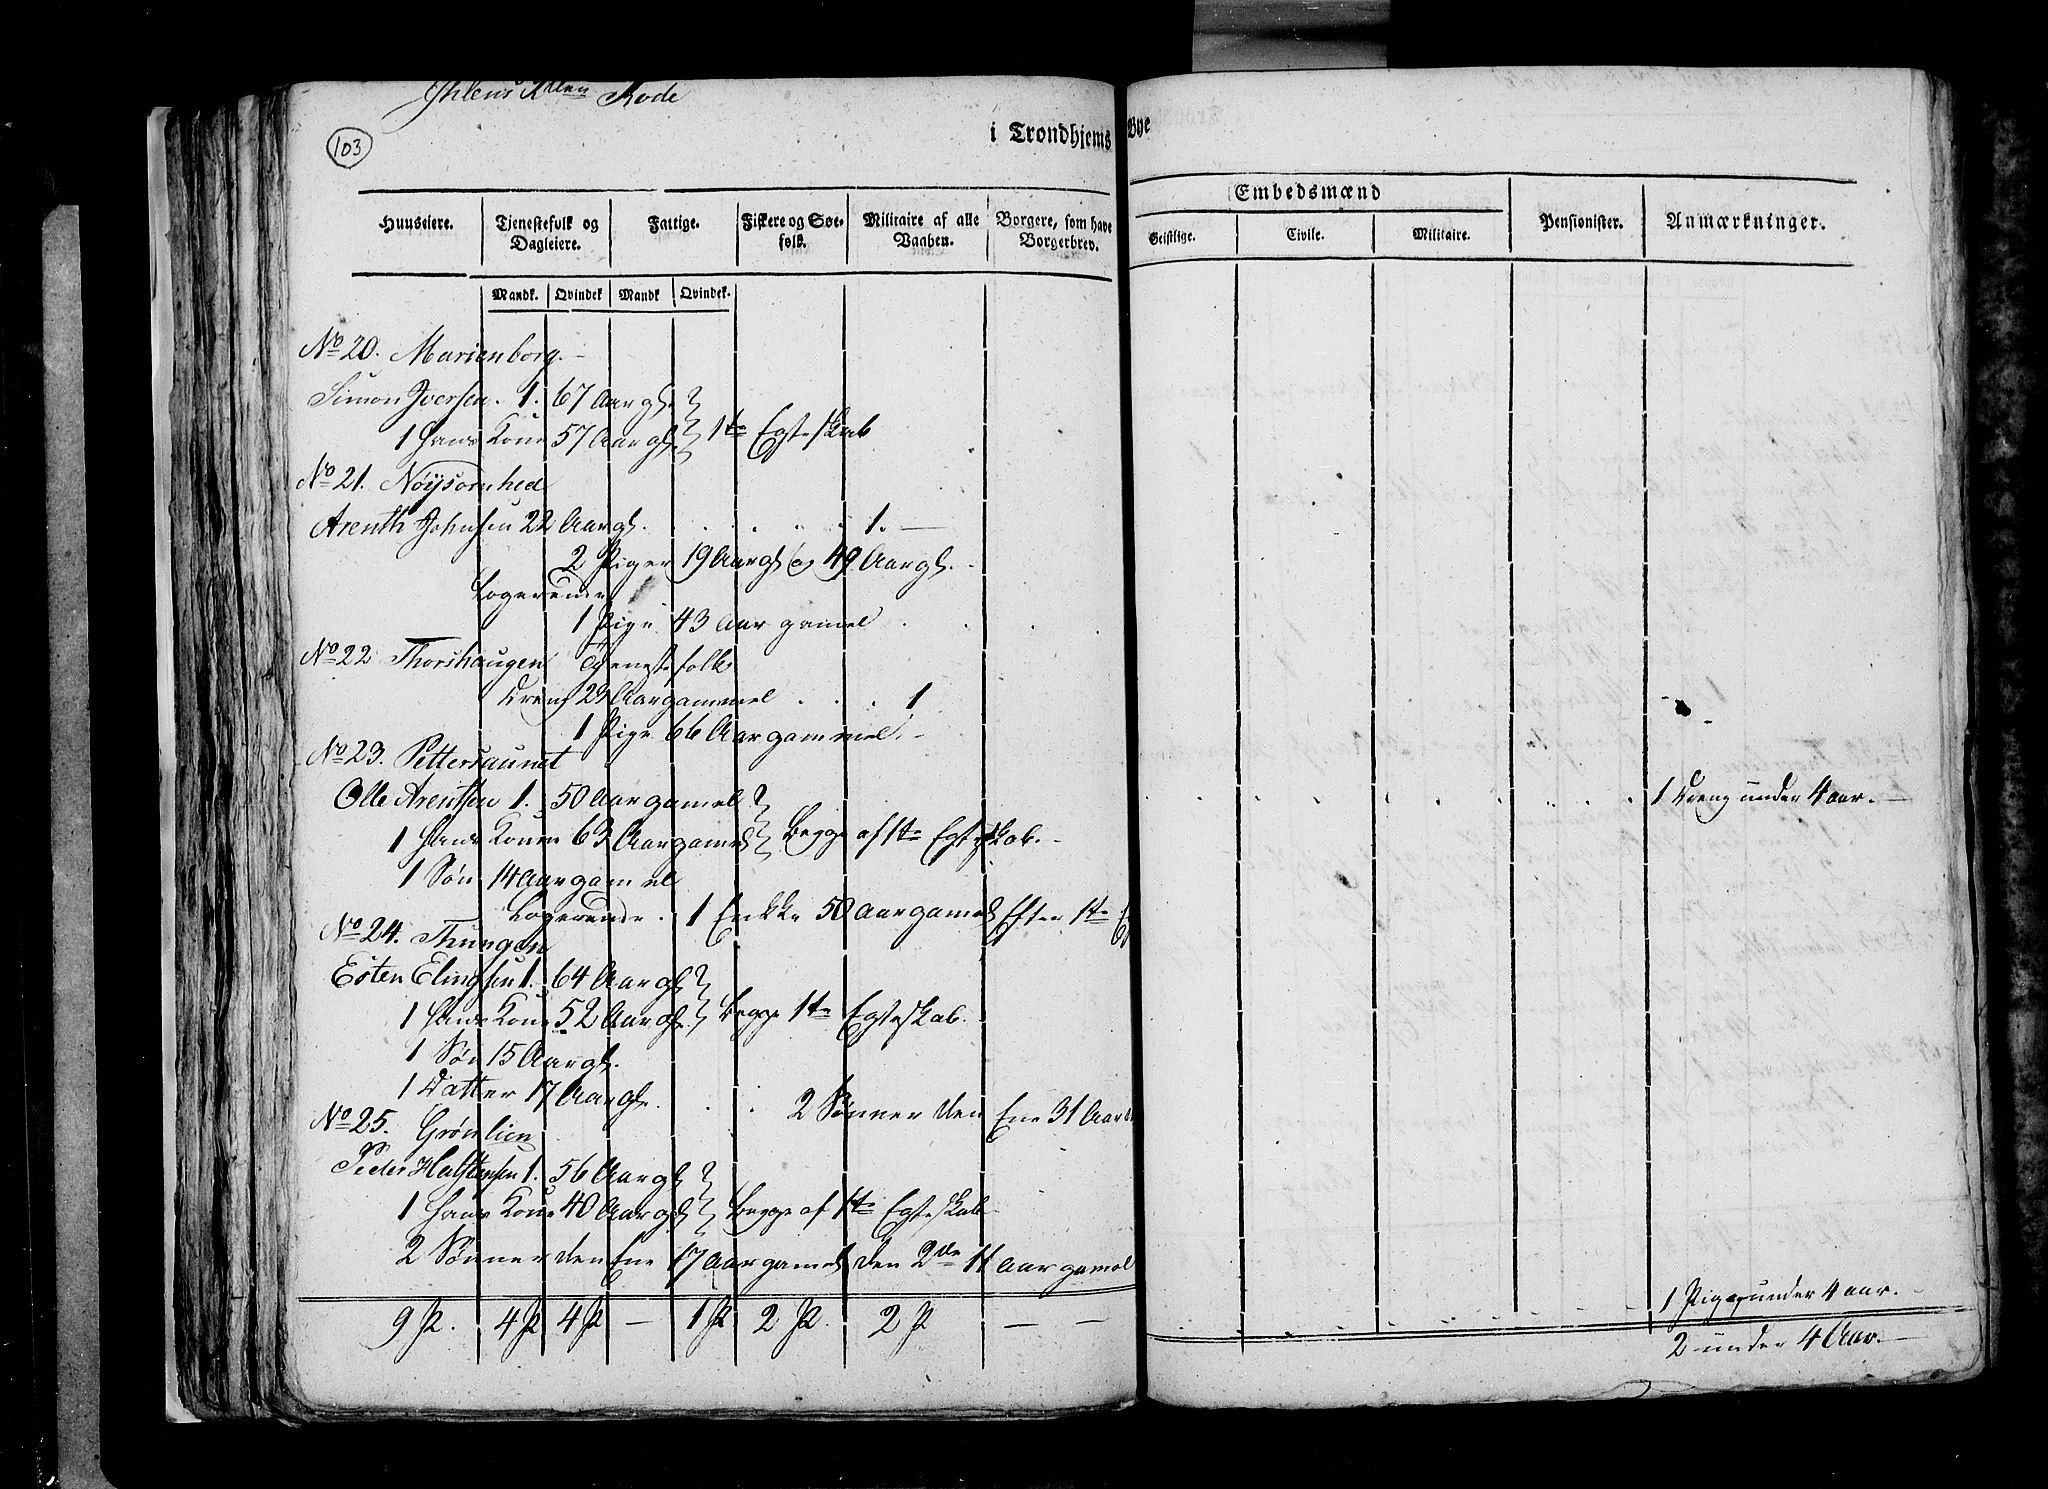 Ihlens Rode
103
i Trondhjems Bye
Huuseiere. Tjenestefolk og Dagleiere. Fattige. Fiskere og Søefolk. Militaire af alle Vaaben. Borgere, som have Borgerbrev. Embedsmænd Pensionister. Anmærkninger.
Geistlige. Civile. Militaire.
Mandk. Qvindek Mandk Qvindek.
No 20. Marienborg.
Simon Iversen. 1. 67 Aar gl.
1 Hans Kone 57 Aar gl. 1te Egteskab
No 21. Nøysomhed
Arenth Johnsen 22 Aar gl. . . . . 1. —
2 Piger 19 Aar gl og 49 Aar gl. -
Logerende
1 Pige 43 Aar gamel . . .
No 22 Thorshaugen Tjenestefolk
Dreng 23 Aar gammel . . . 1
1 Pige 66 Aar gammel. -
No 23. Pettersaunet
Olle Arentsen 1. 50 Aar gamel . . . . . 1 Dreng under 4 aar. —
1 Hans Kone 63 Aar gamel Begge af 1te Egteskab. -
1 Søn 14 Aar gamel
Logerende . 1 Enkke 50 Aar gamel Efter 1te E
No 24. Thungen
Esten Elingsen 1. 64 Aar gl
1 Hans Kone 52 Aar gl. Begge 1te Egteskab.
1 Søn 15 Aar gl.
1 Datter 17 Aar gl. . . 2 Sønner den Ene 31 Aar
No 25. Grønlien
Peder Halstensen 1. 56 Aar gl
1 Hans Kone 40 Aar gl Begge af 1te Egteskab
2 Sønner den Ene 17 Aar gamel den 2de 11 Aar gamel
1 Pige under 4 aar. -
9 P. 4 P 4 P — 1 P 2 P. 2 P — —
2 under 4 Aar. —